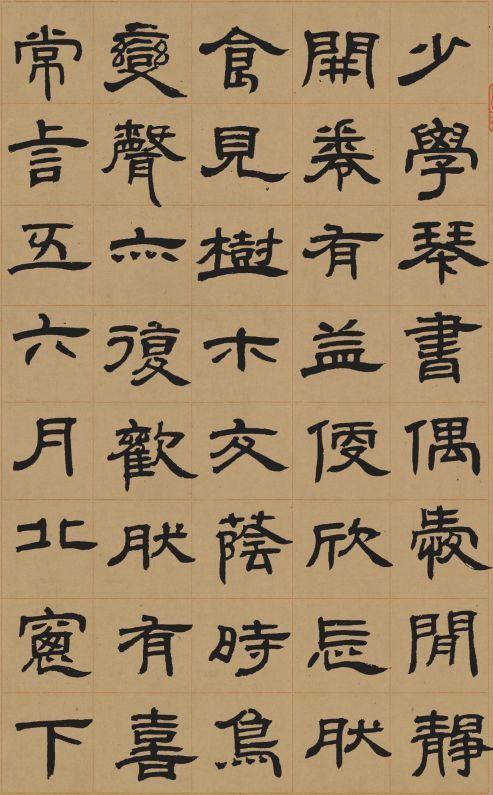 少學琴書偶愛閒靜
開卷有益便欣忘肰
食見樹木交蔭時鳥
變聲亦復歡肰有喜
常言五六月北窻下